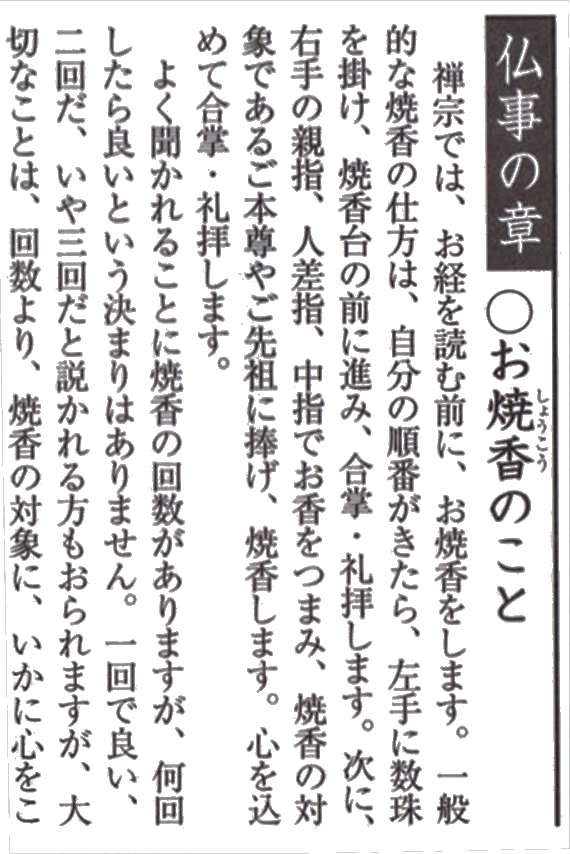 仏事の章
〇お焼香のこと
しょうこう
禅宗では、お経を読む前に、お焼香をします。一般
的な焼香の仕方は、自分の順番がきたら、左手に数珠
を掛け、焼香台の前に進み、合掌・礼拝します。次に、
右手の親指、人差指、中指でお香をつまみ、焼香の対
象であるご本尊やご先祖に捧げ、焼香します。心を込
めて合掌・礼拝します。
よく聞かれることに焼香の回数がありますが、何回
したら良いという決まりはありません。一回で良い、
二回だ、いや三回だと説かれる方もおられますが、大
切なことは、回数より、焼香の対象に、いかに心をこ